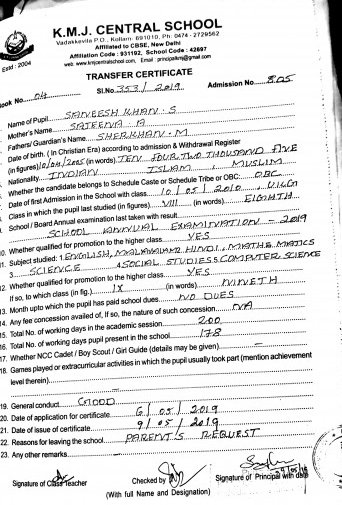 K.M.J. CENTRAL SCHOOL
Vadakkevila P.O., Kollam- 691010, Ph: 0474 - 2729562
Affiliated to CBSE, New Delhi
Affiliation Code : 931192, School Code : 42697
www.kmjcentralschool.com, Email : principalkmj@gmail.com
Estd : 2004
TRANSFER CERTIFICATE
Book No. 04 Sl.No. 353 / 2019 Admission No. 805
Name of Pupil SANEESH KHAN . S
Mother's Name SAJEENA . A
Fathers/ Guardian's Name SHERKHAN . M
Date of birth. ( In Christian Era) according to admission & Withdrawal Register
(in figures) 10/04/2005 (in words) TEN FOUR TWO THOUSAND FIVE
Nationality INDIAN ISLAM , MUSLIM
Whether the candidate belongs to Schedule Caste or Schedule Tribe or OBC: OBC
Date of first Admission in the School with class 10/05/2010 , U.K.G
Class in which the pupil last studied (in figures) VIII (in words) EIGHTH
School / Board Annual examination last taken with result
SCHOOL ANNUAL EXAMINATION - 2019
10. Whether qualified for promotion to the higher class YES
11. Subject studied: 1 ENGLISH, MALAYALAM, HINDI, MATHEMATICS
3 SCIENCE 4 SOCIAL STUDIES 5 COMPUTER SCIENCE
12. Whether qualified for promotion to the higher class YES
If so, to which class (in fig.) IX (in words) NINETH
13. Month upto which the pupil has paid school dues NO DUES
14. Any fee concession availed of, If so, the nature of such concession NA
15. Total No. of working days in the academic session 200
16. Total No. of working days pupil present in the school 178
17. Whether NCC Cadet / Boy Scout / Girl Guide (details may be given) -
18. Games played or extracurricular activities in which the pupil usually took part (mention achievement
level therein) -
19. General conduct GOOD
20. Date of application for certificate 6 / 05 / 2019
21. Date of issue of certificate 9 / 05 / 2019
22. Reasons for leaving the school PARENT'S REQUEST
23. Any other remarks -
Signature of Class Teacher Checked by Signature of Principal with date
(With full Name and Designation)